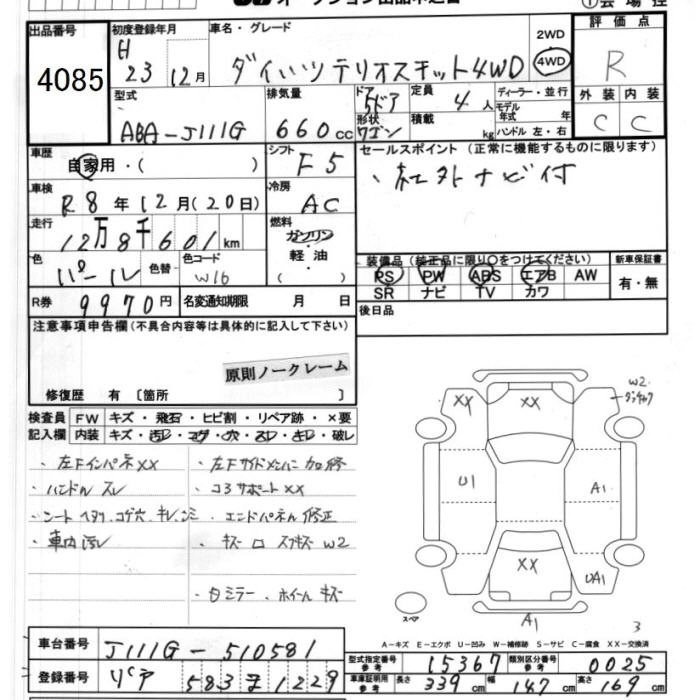 出品番号 4085
初度登録年月 H 23 12月
車名・グレード ダイハツテリオスキット4WD
2WD 4WD
評価点 R
型式 ABA-J111G
排気量 660cc
ドア 5ドア
形状 ワゴン
定員 4人
積載 kg
ディーラー・並行
モデル年式 年式
ハンドル 左・右
外装 C 内装 C
車歴 自家用・( )
シフト F5
セールスポイント(正常に機能するものに限ります)
、社外ナビ付
車検 R8年12月(20日)
冷房 AC
走行 12万8千601km
燃料 ガソリン・軽油・( )
色 パール 色替 色コード W16
装備品(純正品に限り○をつけてください) 新車保証書
PS PW ABS エアB AW 有・無
SR ナビ TV カワ
R券 9970円 名変通知期限 月 日
後日品
注意事項申告欄(不具合内容等は具体的に記入して下さい)
原則ノークレーム
修復歴 有〔箇所 〕
検査員 FW キズ・飛石・ヒビ割・リペア跡・×要
記入欄 内装 キズ・汚レ・コゲ・穴・スレ・キレ・破レ
・左Fインパネ XX
・ハンドル スレ
・シート ヘタリ、コゲ穴、キレ、シミ
・車内汚レ
・左Fサイドメンバー 加修
・コアサポート XX
・エンドパネル 修正
・キズ
W2
・白ミラー・ホイールキズ
XX XX W2
U1 A1
XX UA1
A1 3
スペア
A-キズ E-エクボ U-凹み W-補修跡 S-サビ C-腐食 XX-交換済
車台番号 J111G-510581
型式指定番号 参考 15367 類別区分番号 参考 0025
登録番号 583 1229
車庫証明用 参考 長さ 339cm 幅 147cm 高さ 169cm